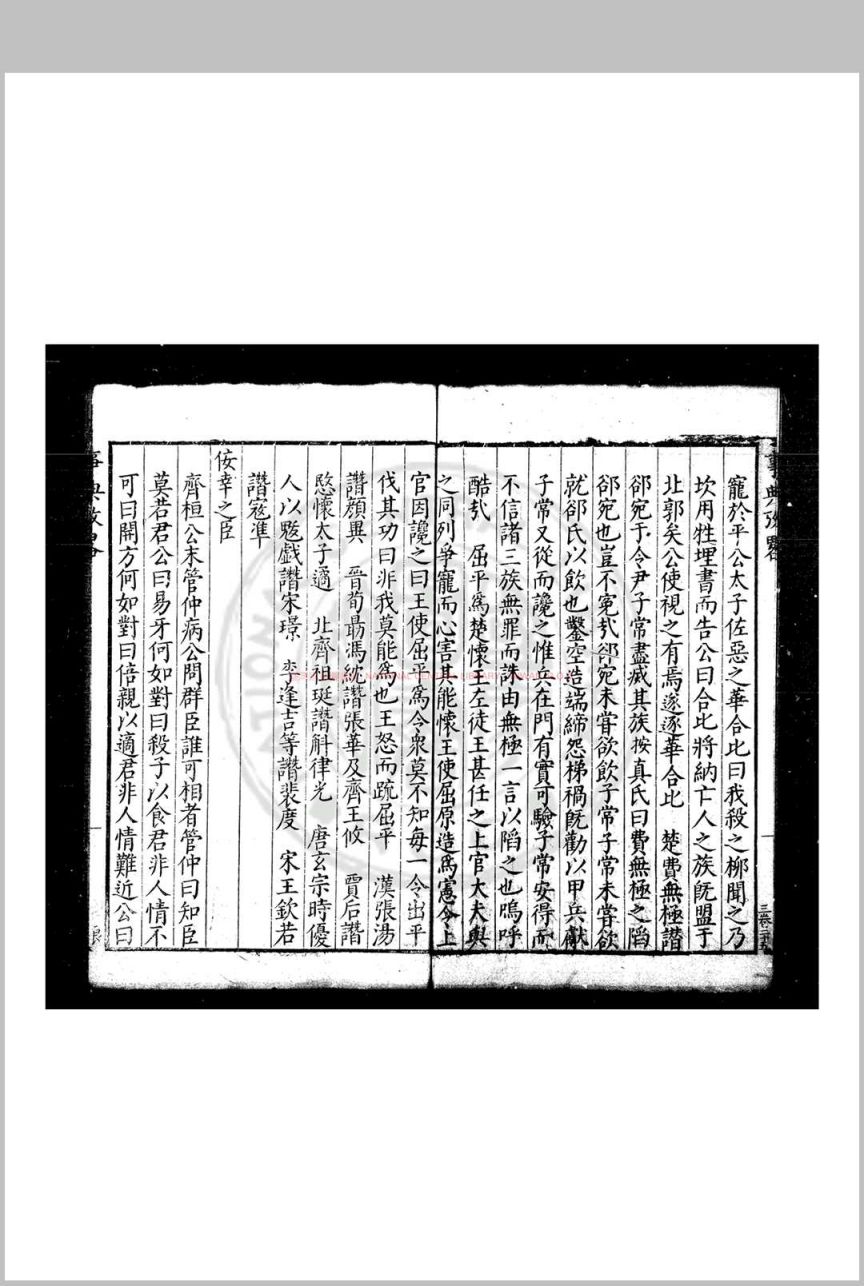 寵於平公太子佐惡之華合比曰我殺之柳聞之乃
坎用牲埋書而告公曰合比將納亡人之族旣盟于
北郭矣公使視之有焉遂逐華合比　楚費無極譖
郤宛于令尹子常盡滅其族按真氏曰費無極之陷
郤宛也豈不冤㢤郤宛未甞欲飲子常子常未甞欲
就郤氏以飲也鑿空造端締怨梯禍旣勸以甲兵獻
子常又從而讒之惟兵在門有實可驗子常安得而
不信諸三族無罪而誅由無極一言以陷之也嗚呼
酷㢤　屈平爲楚懷王左徒王甚任之上官大夫與
之同列爭寵而心害其能懷王使屈原造爲憲令上
官因讒之曰王使屈平爲令衆莫不知每一令出平
伐其功曰非我莫能爲也王怒而疏屈平　漢張湯
譖顔異　晉荀勗馮紞譖張華及齊王攸　賈后譖
愍懷太子遹　北齊祖珽譖斛律光　唐玄宗時優
人以魃戱譖宋璟　李逢吉等譖裴度　宋王欽若
譖寇凖
佞幸之臣
齊桓公末管仲病公問群臣誰可相者管仲曰知臣
莫若君公曰易牙何如對曰殺子以食君非人情不
可曰開方何如對曰倍親以適君非人情難近公曰